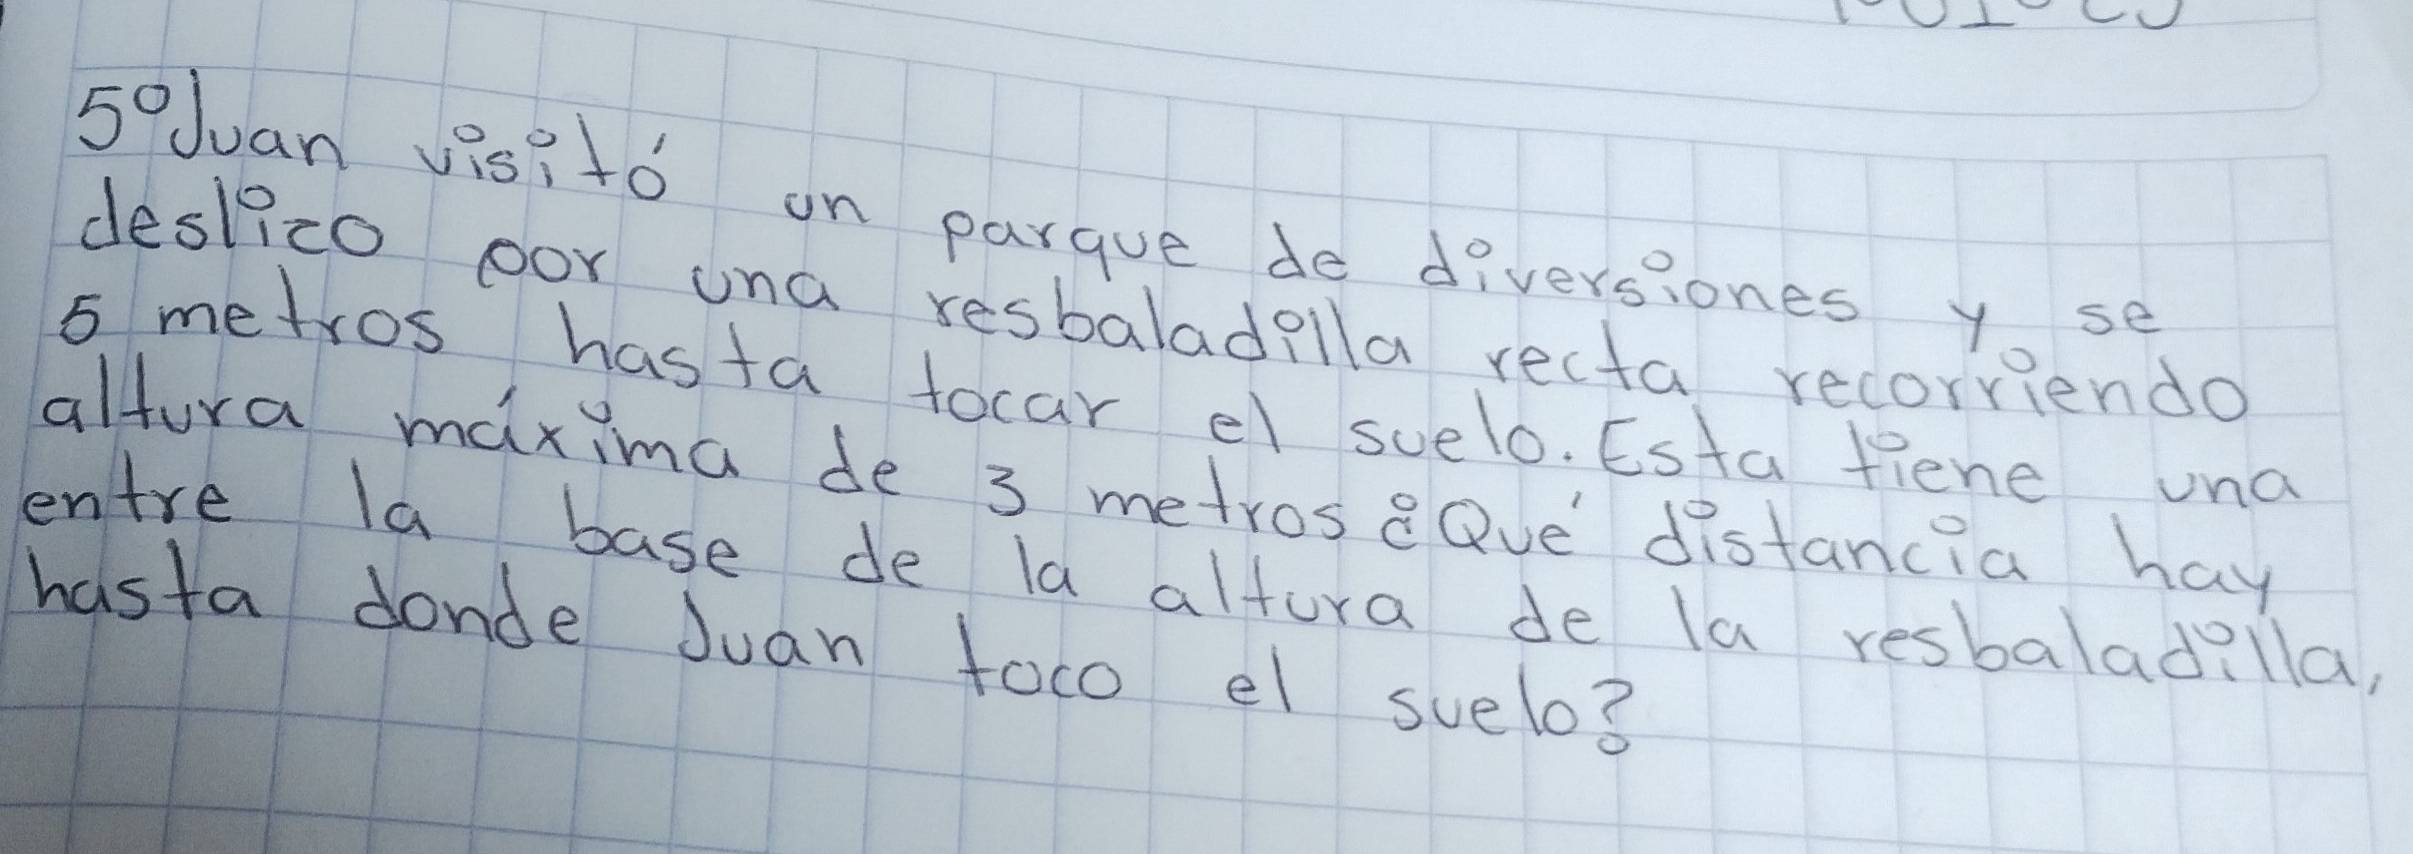 5º Juan visitó un parque de diversiones y se
deslizo por una resbaladilla recta recorriendo
5 metros hasta tocar el suelo. Esta tiene una
altura máxima de 3 metros ¿Qué distancia hay
entre la base de la altura de la resbaladilla,
hasta donde Juan toco el suelo?